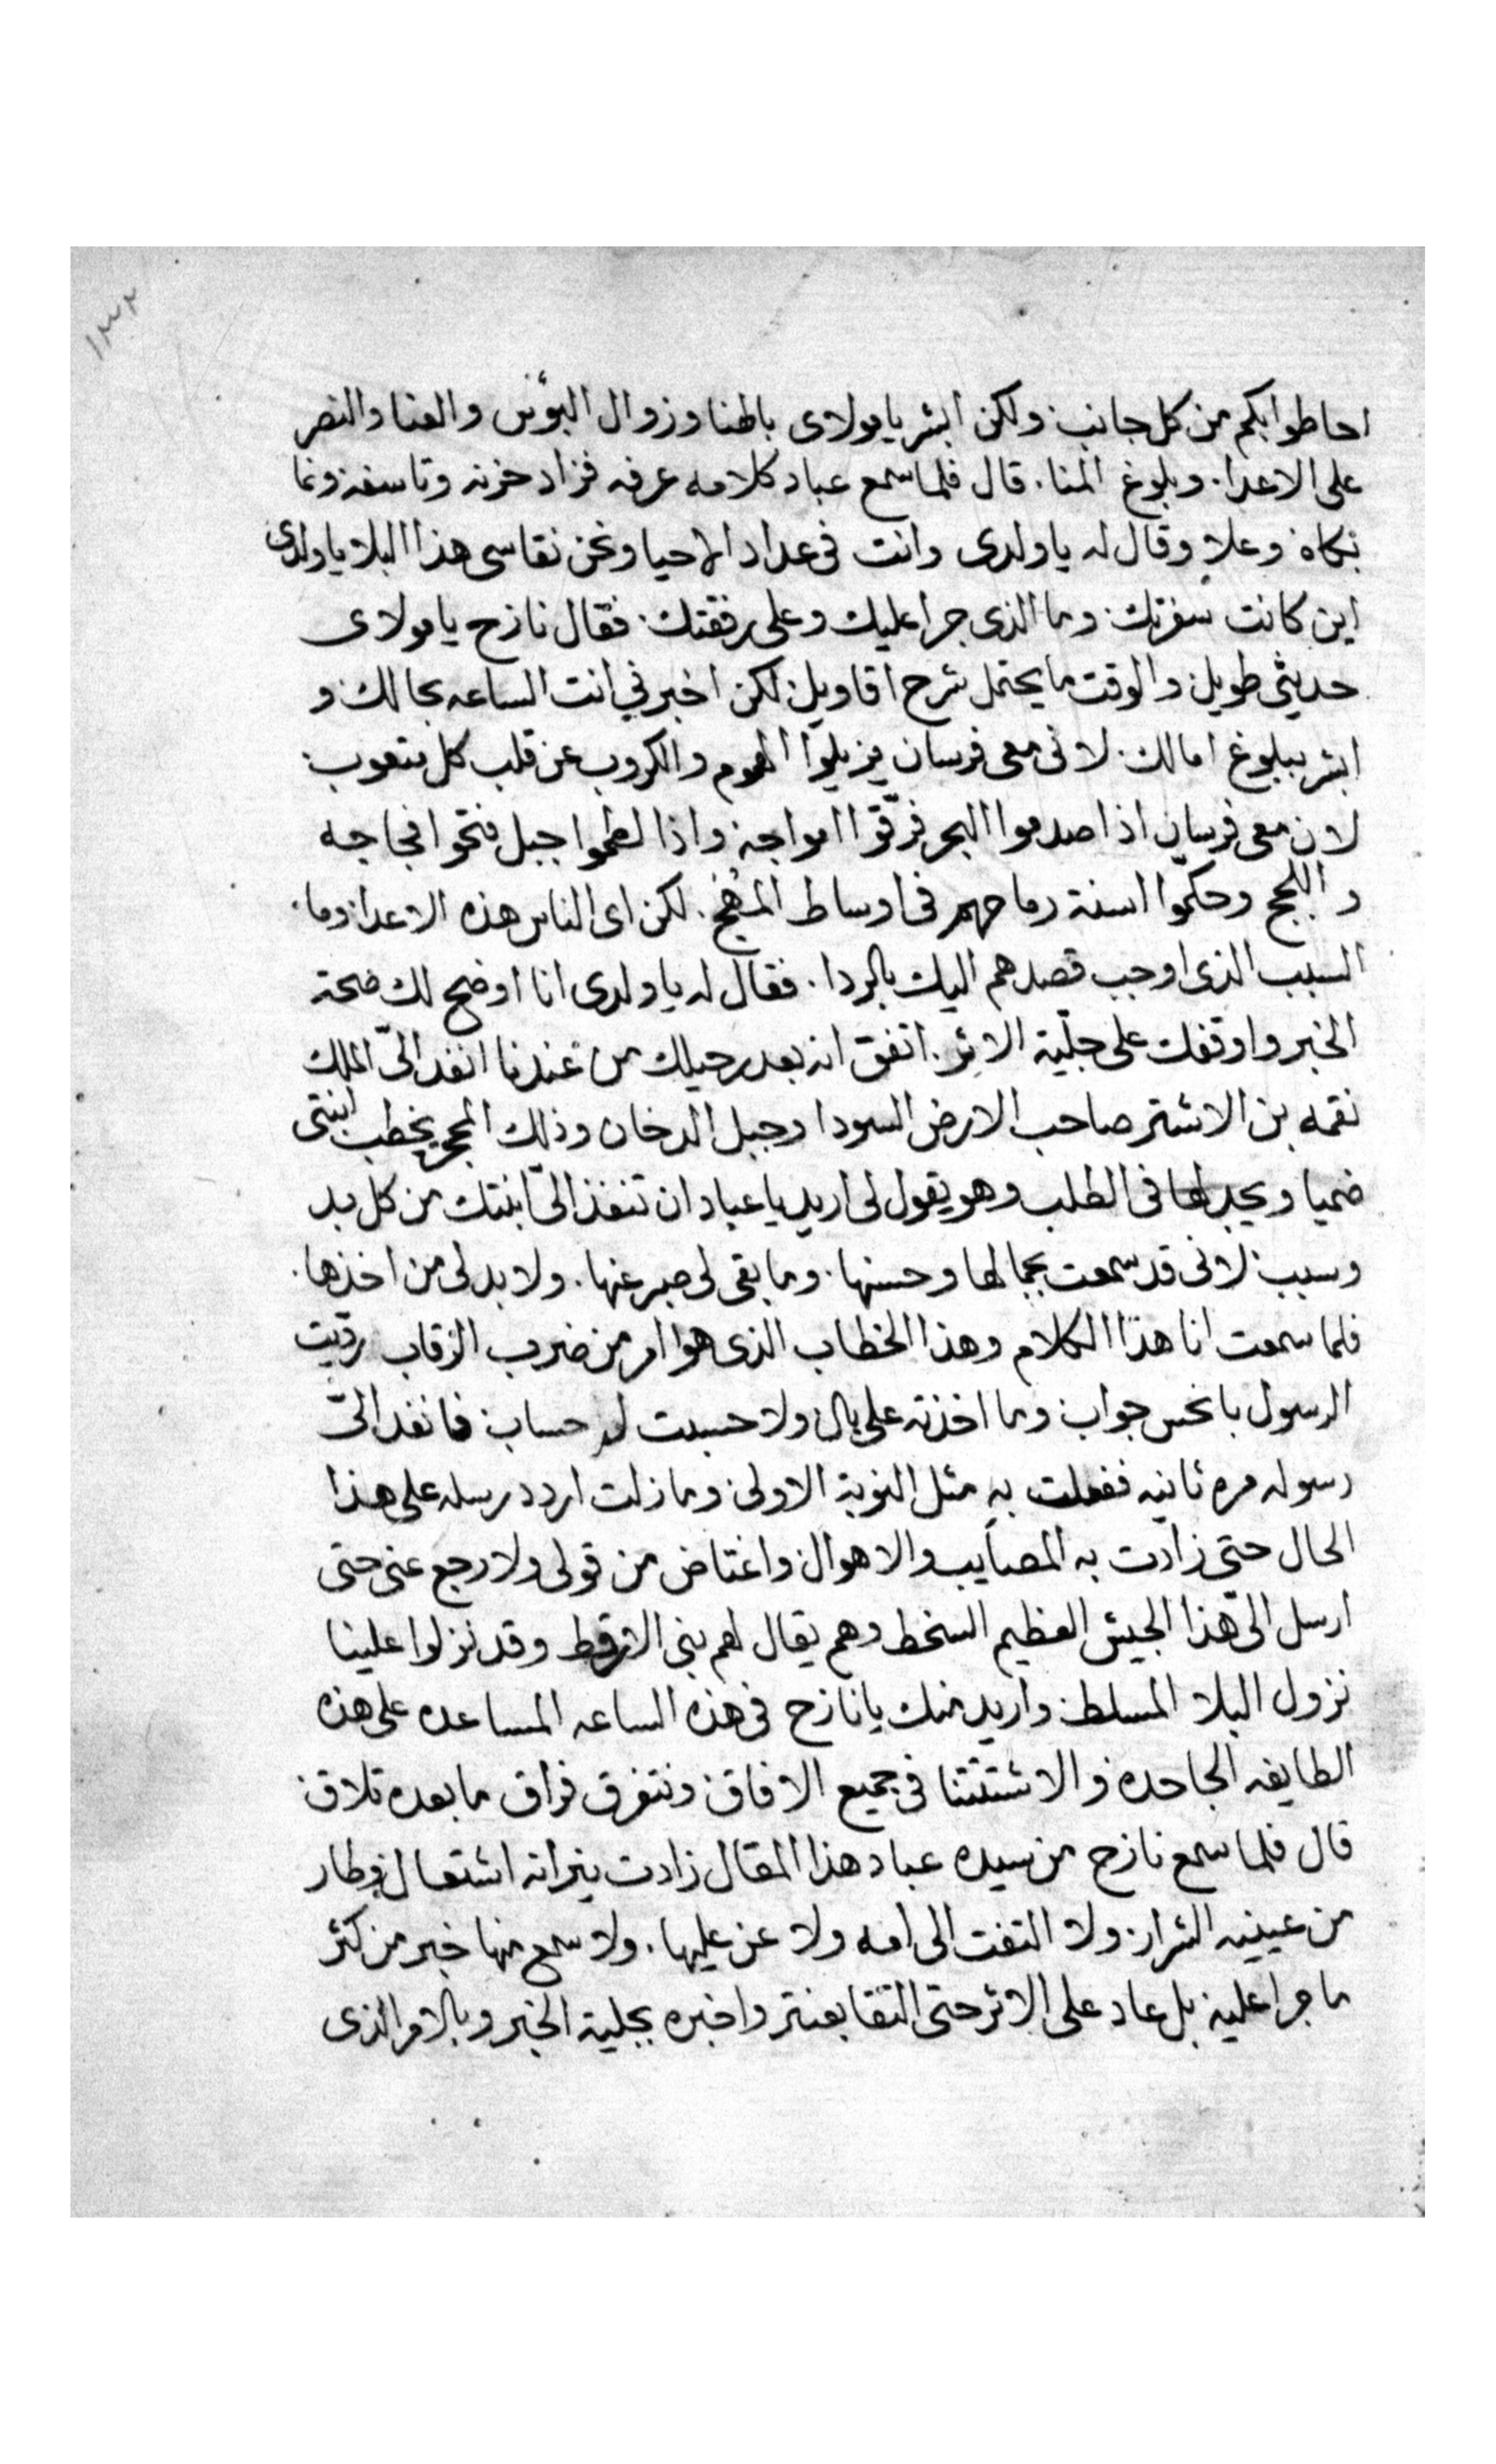 ١٣٢
احاطوا بكم من كل جانب ولكن ابشر يا مولاى بالهنا وزوال البؤس والعنا والنصر
على الاعدا. وبلوغ المنا. قال فلما سمع عباد كلامه عرفه فزاد حزنه وتاسفه ونما
بكاه وعلا وقال له يا ولدى وانت فى عداد الاحيا ونحن نقاسى هذا البلا يا ولدى
اين كانت سفرتك. وما الذى جرا عليك وعلى رفقتك. فقال نازح يا مولاى
حديثى طويل والوقت ما يحتمل شرح اقاويل لكن اخبرنى انت الساعه بحالك و
ابشر ببلوغ امالك. لانى معى فرسان يزيلوا الهموم والكروب عن قلب كل متعوب.
لان معى فرسان اذا صدموا البحر فرّقوا امواجه واذا لطموا جبل فتحوا فجاجه
و اللجج وحكّموا اسنة رماحهم فى اوساط المُهج. لكن اى الناس هذه الاعدا وما
السبب الذى اوجب قصدهم اليك بالردا. فقال له يا ولدى انا اوضح لك صحة
الخبر واوقفك على جليّة الاثر. اتفق انه بعد رحيلك من عندنا انفد الىّ الملك
نقمه بن الاشتر صاحب الارض السودا وجبل الدخان وذلك الحجر يخطب ابنتى
ضميا ويجد لها فى الطلب وهو يقول لى اريد يا عباد ان تنفذ الىّ ابنتك من كل بد
وسبب لانى قد سمعت بجمالها وحسنها. وما بقى لى صبر عنها. ولا بد لى من اخذها.
فلما سمعت انا هذا الكلام وهذا الخطاب الذى هو امر من ضرب الرقاب ردّيت
الرسول بانحس جواب وما اخذته على بال ولا حسبت له حساب فانفد الىّ
رسوله مره ثانيه ففعلت به مثل النوبة الاولى وما زلت اردد رسله على هذا
الحال حتى زادت به المصايب والاهوال واغتاض من قولى ولا رجع عنى حتى
ارسل الىّ هذا الجيش العظيم السخط وهم يقال لهم بنى الارقط وقد نزلوا علينا
نزول البلا المسلط واريد منك يا نازح فى هذه الساعه المساعده على هذه
الطايفه الجاحده و الا شتتنا فى جميع الافاق ونتفرق فراق ما بعده تلاق
قال فلما سمع نازح من سيده عباد هذا المقال زادت نيرانه اشتعال وطار
من عينيه الشرار ولا التفت الى امه ولا عن عليها. ولا سمع منها خبر من كثر
ما جرا عليه بل عاد على الاثر حتى التقا بعنتر واخبره بجلية الخبر وبالامر الذى